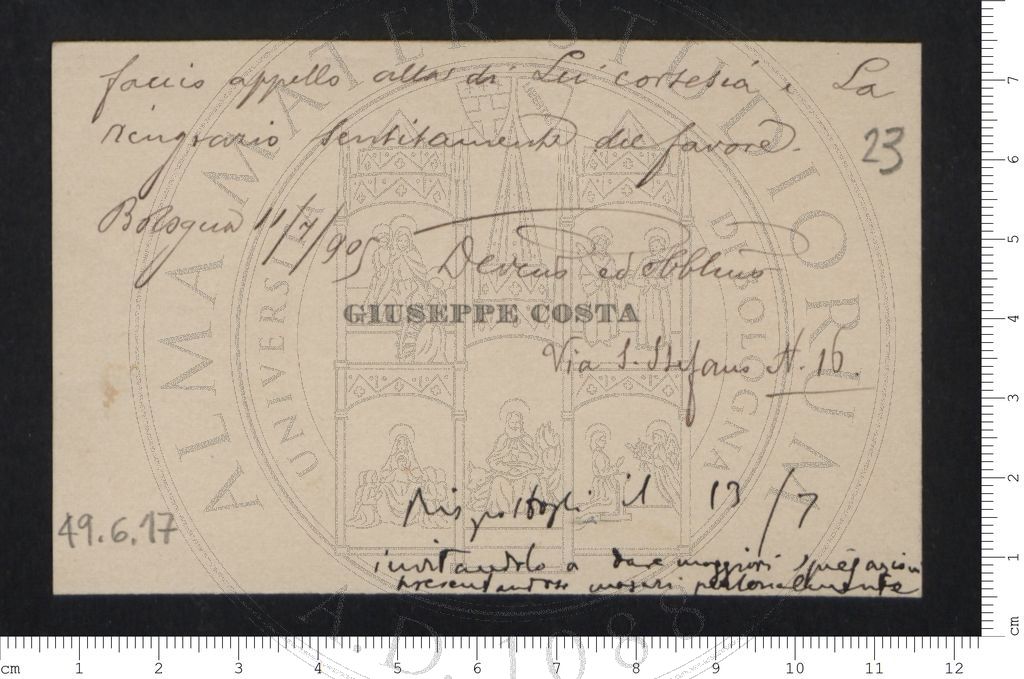 faccio appello alla di Lei cortesia e La
ringrazio sentitamente del favore.
23
Bologna 11/7/905
Devmo ed obblmo
GIUSEPPE COSTA
Via S. Stefano N. 16.
Rispostogli il 13/7
49.6.17
invitandolo a dare maggiori spiegazioni
presentandosi magari personalmente
ALMA MATER STUDIORUM
UNIVERSITÀ DI BOLOGNA
A.D. 1088
cm 1 2 3 4 5 6 7 8 9 10 11 12
cm 1 2 3 4 5 6 7